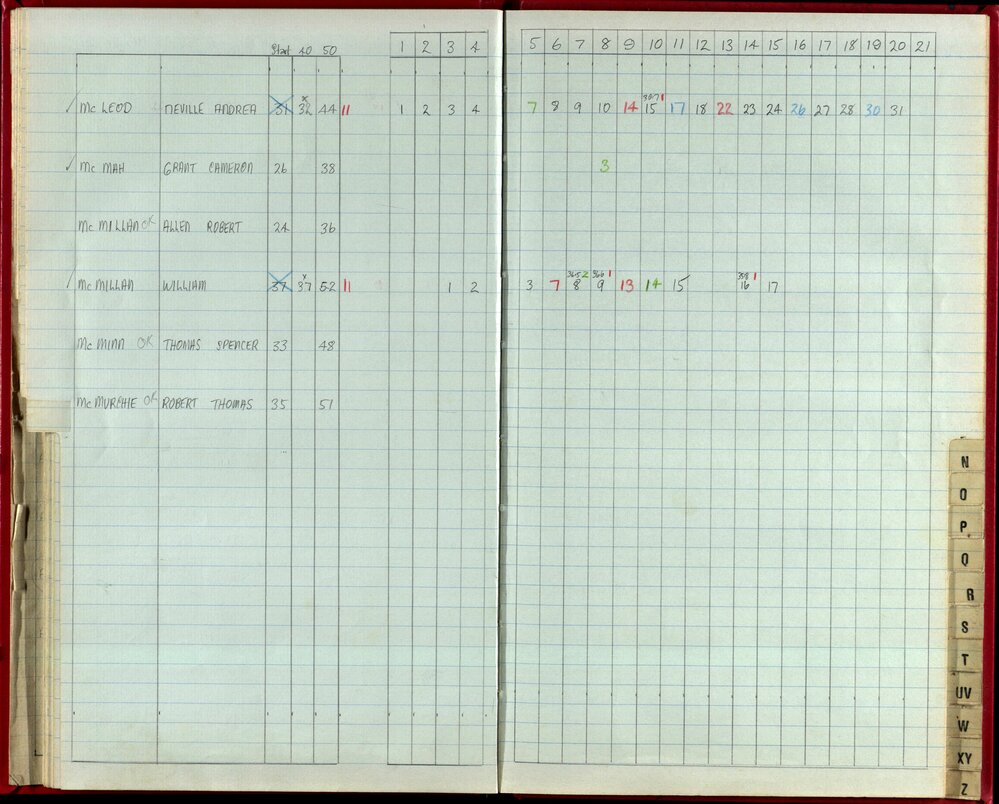 Start 40 50 1 2 3 4 5 6 7 8 9 10 11 12 13 14 15 16 17 18 19 20 21
3071
Mc LEOD NEVILLE ANDREA 31 x 32 44 11 1 2 3 4 7 8 9 10 14 15 17 18 22 23 24 26 27 28 30 31
Mc MAH GRANT CAMERON 26 38 3
Mc MILLAN OK ALLEN ROBERT 24 36
365 2 366 1 1
Mc MILLAN WILLIAM 37 x 37 52 11 1 2 3 7 8 9 13 14 15 16 17
Mc MINN OK THOMAS SPENCER 33 48
Mc MURCHIE OK ROBERT THOMAS 35 51
N
O
P
Q
R
S
T
UV
W
XY
Z